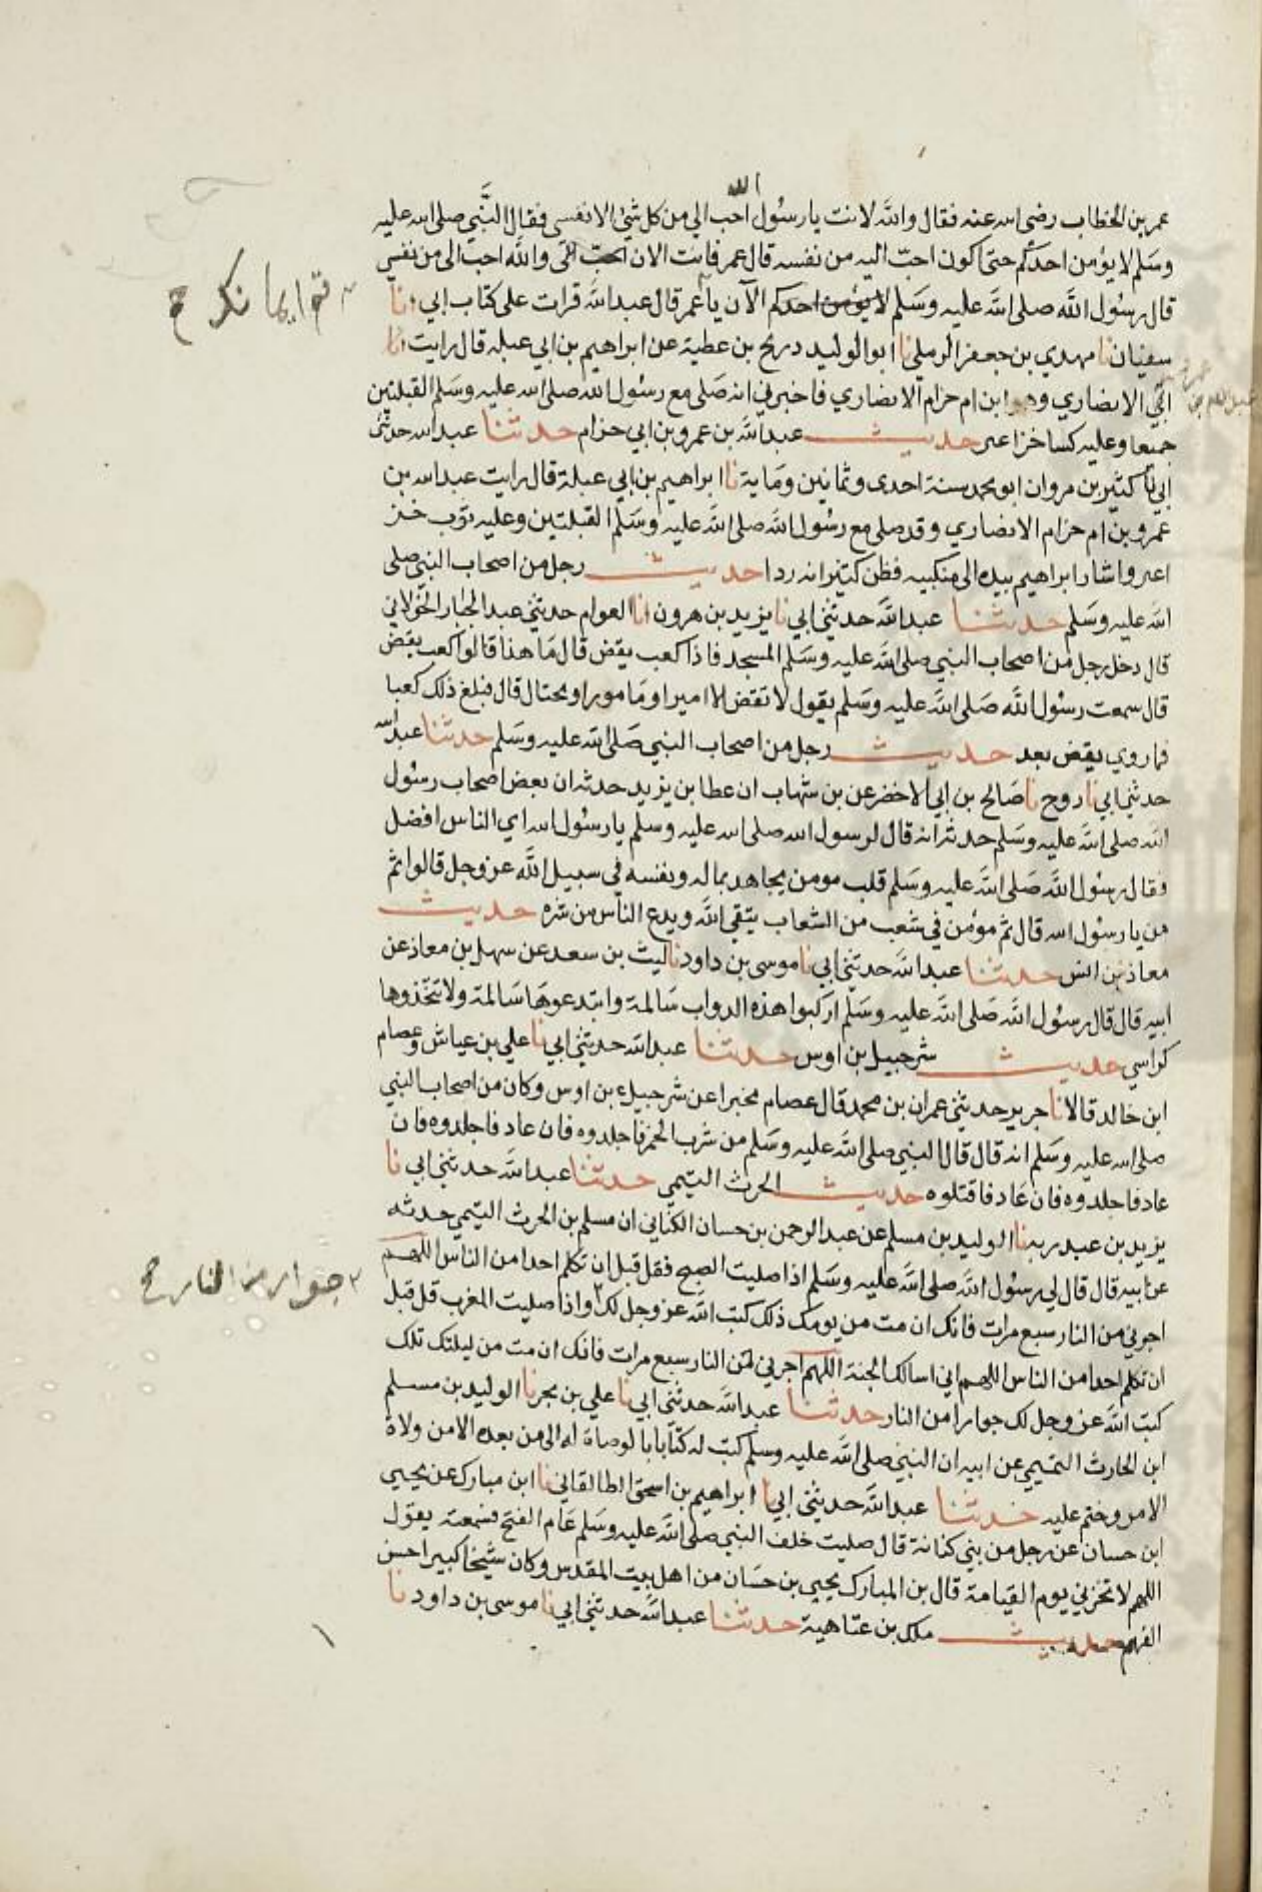 الله
عمر بن الخطاب رضي الله عنه فقال والله لانت يا رسول احب الي من كل شئ الا نفسي فقال النَّبي صلى الله عليه
وسَلم لا يؤمن احدكم حتى اكون احبّ اليه من نفسه قال عمر فانت الان والله احب الى من نفسي
قال رسول الله صلى الله عليه وسَلم الآن يا عمر قال عبد الله قرات على كتاب ابي انا
سفيان نا مهدي بن جعفر الرملي نا ابو الوليد دريح بن عطية عن ابراهيم بن ابي عبله قال رايت انا
ابي الانصاري وهو ابن ام حزام الانصاري فاخبرني انه صَلى مع رسول الله صلى الله عليه وسَلم القبلتين
جميعا وعليه كسا خز اغبر حديث عبد الله بن عمرو بن ابي حزام حدثنا عبد الله حدثني
ابي نا كثير بن مروان ابو محمد سنة احدى وثمانين وماية نا ابراهيم بن ابي عبلة قال رايت عبد الله بن
عمرو بن ام حزام الانصاري وقد صلى مع رسُول الله صلى الله عليه وسَلم القبلتين وعليه ثوب خز
اغبر واشار ابراهيم بيده الى منكبيه فظن كثير انه ردا حديث رجل من اصحاب النبي صلى
الله عليه وسَلم حدثنا عبد الله حدثني ابي نا يزيد بن هرون انا العوام حدثني عبد الجبار الخولاني
قال دخل رجل من اصحاب النبي صلى الله عليه وسَلم المسجد فاذا كعب يقض قال مَا هذا قالوا كعب يقض
قال سمعت رسول الله صَلى الله عليه وسَلم يقول لا تقض الا امير او مَامور او محتال قال فبلغ ذلك كعبا
فما روي يقض بعد حديث رجل من اصحاب النبي صَلى الله عليه وسَلم حدثنا عبد الله
حدثني ابي نا روح نا صَالح بن ابي الاخضر عن بن شهاب ان عطا بن يزيد حدثه ان بعض اصحاب رسول
الله صلى الله عليه وسَلم حدثه انه قال لرسول الله صلى الله عليه وسلم يا رسول الله اي الناس افضل
فقال رسُول الله صَلى الله عليه وسَلم قلب مومن يجاهد بماله ونفسه في سبيل الله عز وجل قالوا ثم
من يا رسول الله قال ثم مؤمن في شعب من الشعاب يتقي الله ويدع الناس من شره حديث
معاذ بن انس حدثنا عبد الله حدثني ابي نا موسى بن داود نا ليث بن سعد عن سهل بن معاذ عن
ابيه قال قال رسُول الله صَلى الله عليه وسَلم اركبوا هذه الدواب سَالمة وابتدعوهَا سَالمة ولا تتخذوها
كراسي حديث شرحبيل بن اوس حدثنا عبد الله حدثني ابي نا علي بن عياش وعصام
ابن خالد قالا نا جرير حدثني عمران بن محمد قال عصام مخبرا عن شرحبيل بن اوس وكان من اصحاب النبي
صلى الله عليه وسَلم انه قال قال النبي صلى الله عليه وسَلم من شرب الخمر فاجلدوه فان عاد فاجلدوه فان
عاد فاجلدوه فان عَاد فاقتلوه حديث الحرث التيمي حدثنا عبد الله حدثني ابي نا
يزيد بن عبد ربه نا الوليد بن مسلم عن عبد الرحمن بن حسان الكناني ان مسلم بن الحرث التيمي حدثه
عن ابيه قال قال لي رسُول الله صلى الله عليه وسَلم اذا صليت الصبح فقل قبل ان تكلم احدا من الناس اللهم
اجرني من النار سبع مرات فانك ان مت من يومك ذلك كتب الله عز وجل لك واذا صليت المغرب قل قبل
ان تكلم احدا من الناس اللهم اني اسالك الجنة اللهم اجرني من النار سبع مرات فانك ان مت من ليلتك تلك
كتب الله عز وجل لك جوارا من النار حدثنا عبد الله حدثني ابي نا علي بن بحر نا الوليد بن مسلم
ابن الحارث التميمي عن ابيه ان النبي صلى الله عليه وسلم كتب له كتابا بالوصاة له الى من بعده الامن ولاة
الامر وختم عليه حدثنا عبد الله حدثني ابي نا ابراهيم بن اسحق الطالقاني نا ابن مبارك عن يحيى
ابن حسان عن رجل من بني كنانة قال صليت خلف النبي صلى الله عليه وسلم عَام الفتح فسمعته يقول
اللهم لا تخزني يوم القيامة قال بن المبارك يحيى بن حسَان من اهل بيت المقدس وكان شيخا كبيرا حسن
الفهم حديث ملك بن عتاهية حدثنا عبد الله حدثني ابي نا موسى بن داود نا
جوار من النار